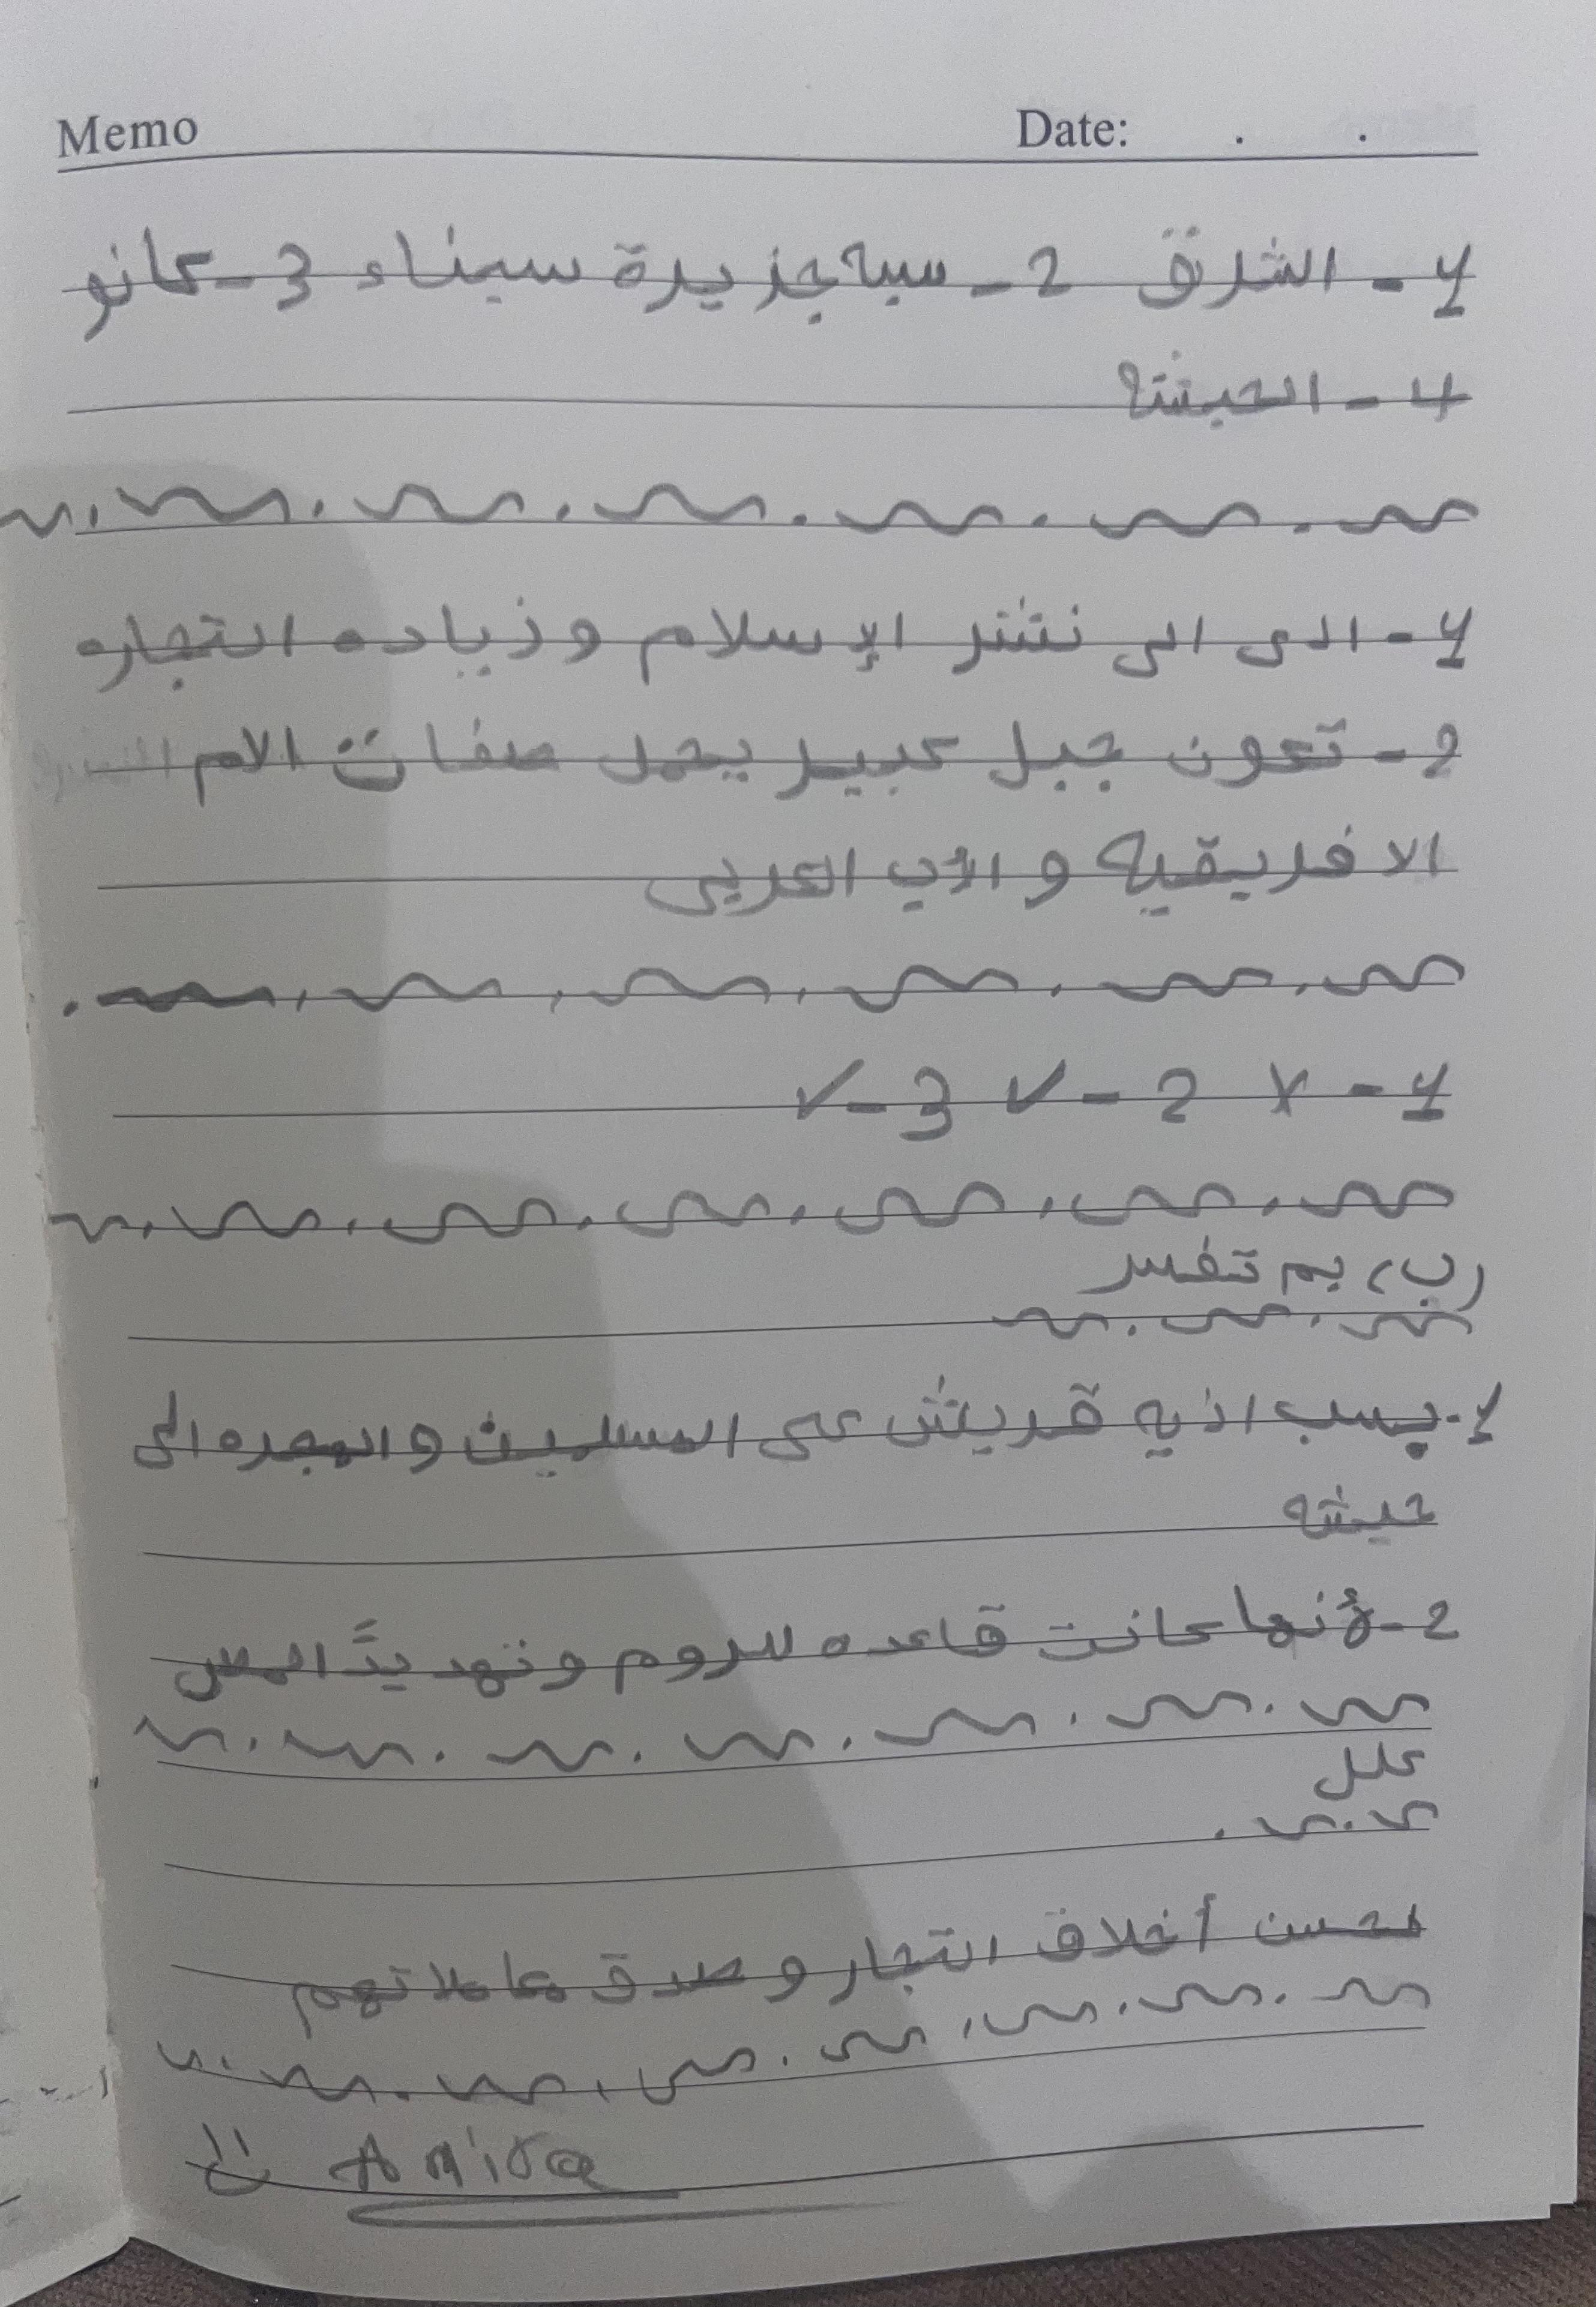 Memo Date: . .
1- الشرق 2- سبه جزيرة سيناء 3- كانو
4- الحبشة
1- ادى الى نشر الإسلام وزياده التجاره
2- تكون جيل كبير يحمل صفات الام
الافريقيه و الأب العربي
1- X 2- ✓ 3- ✓
(ب) بم تفسر
1- بسبب اذيه قريش على المسلمين والهجره الى
حبشه
2- لأنها كانت قاعده للروم وتهديدًا
علل
لحسن أخلاق التجار وصدق معاملاتهم